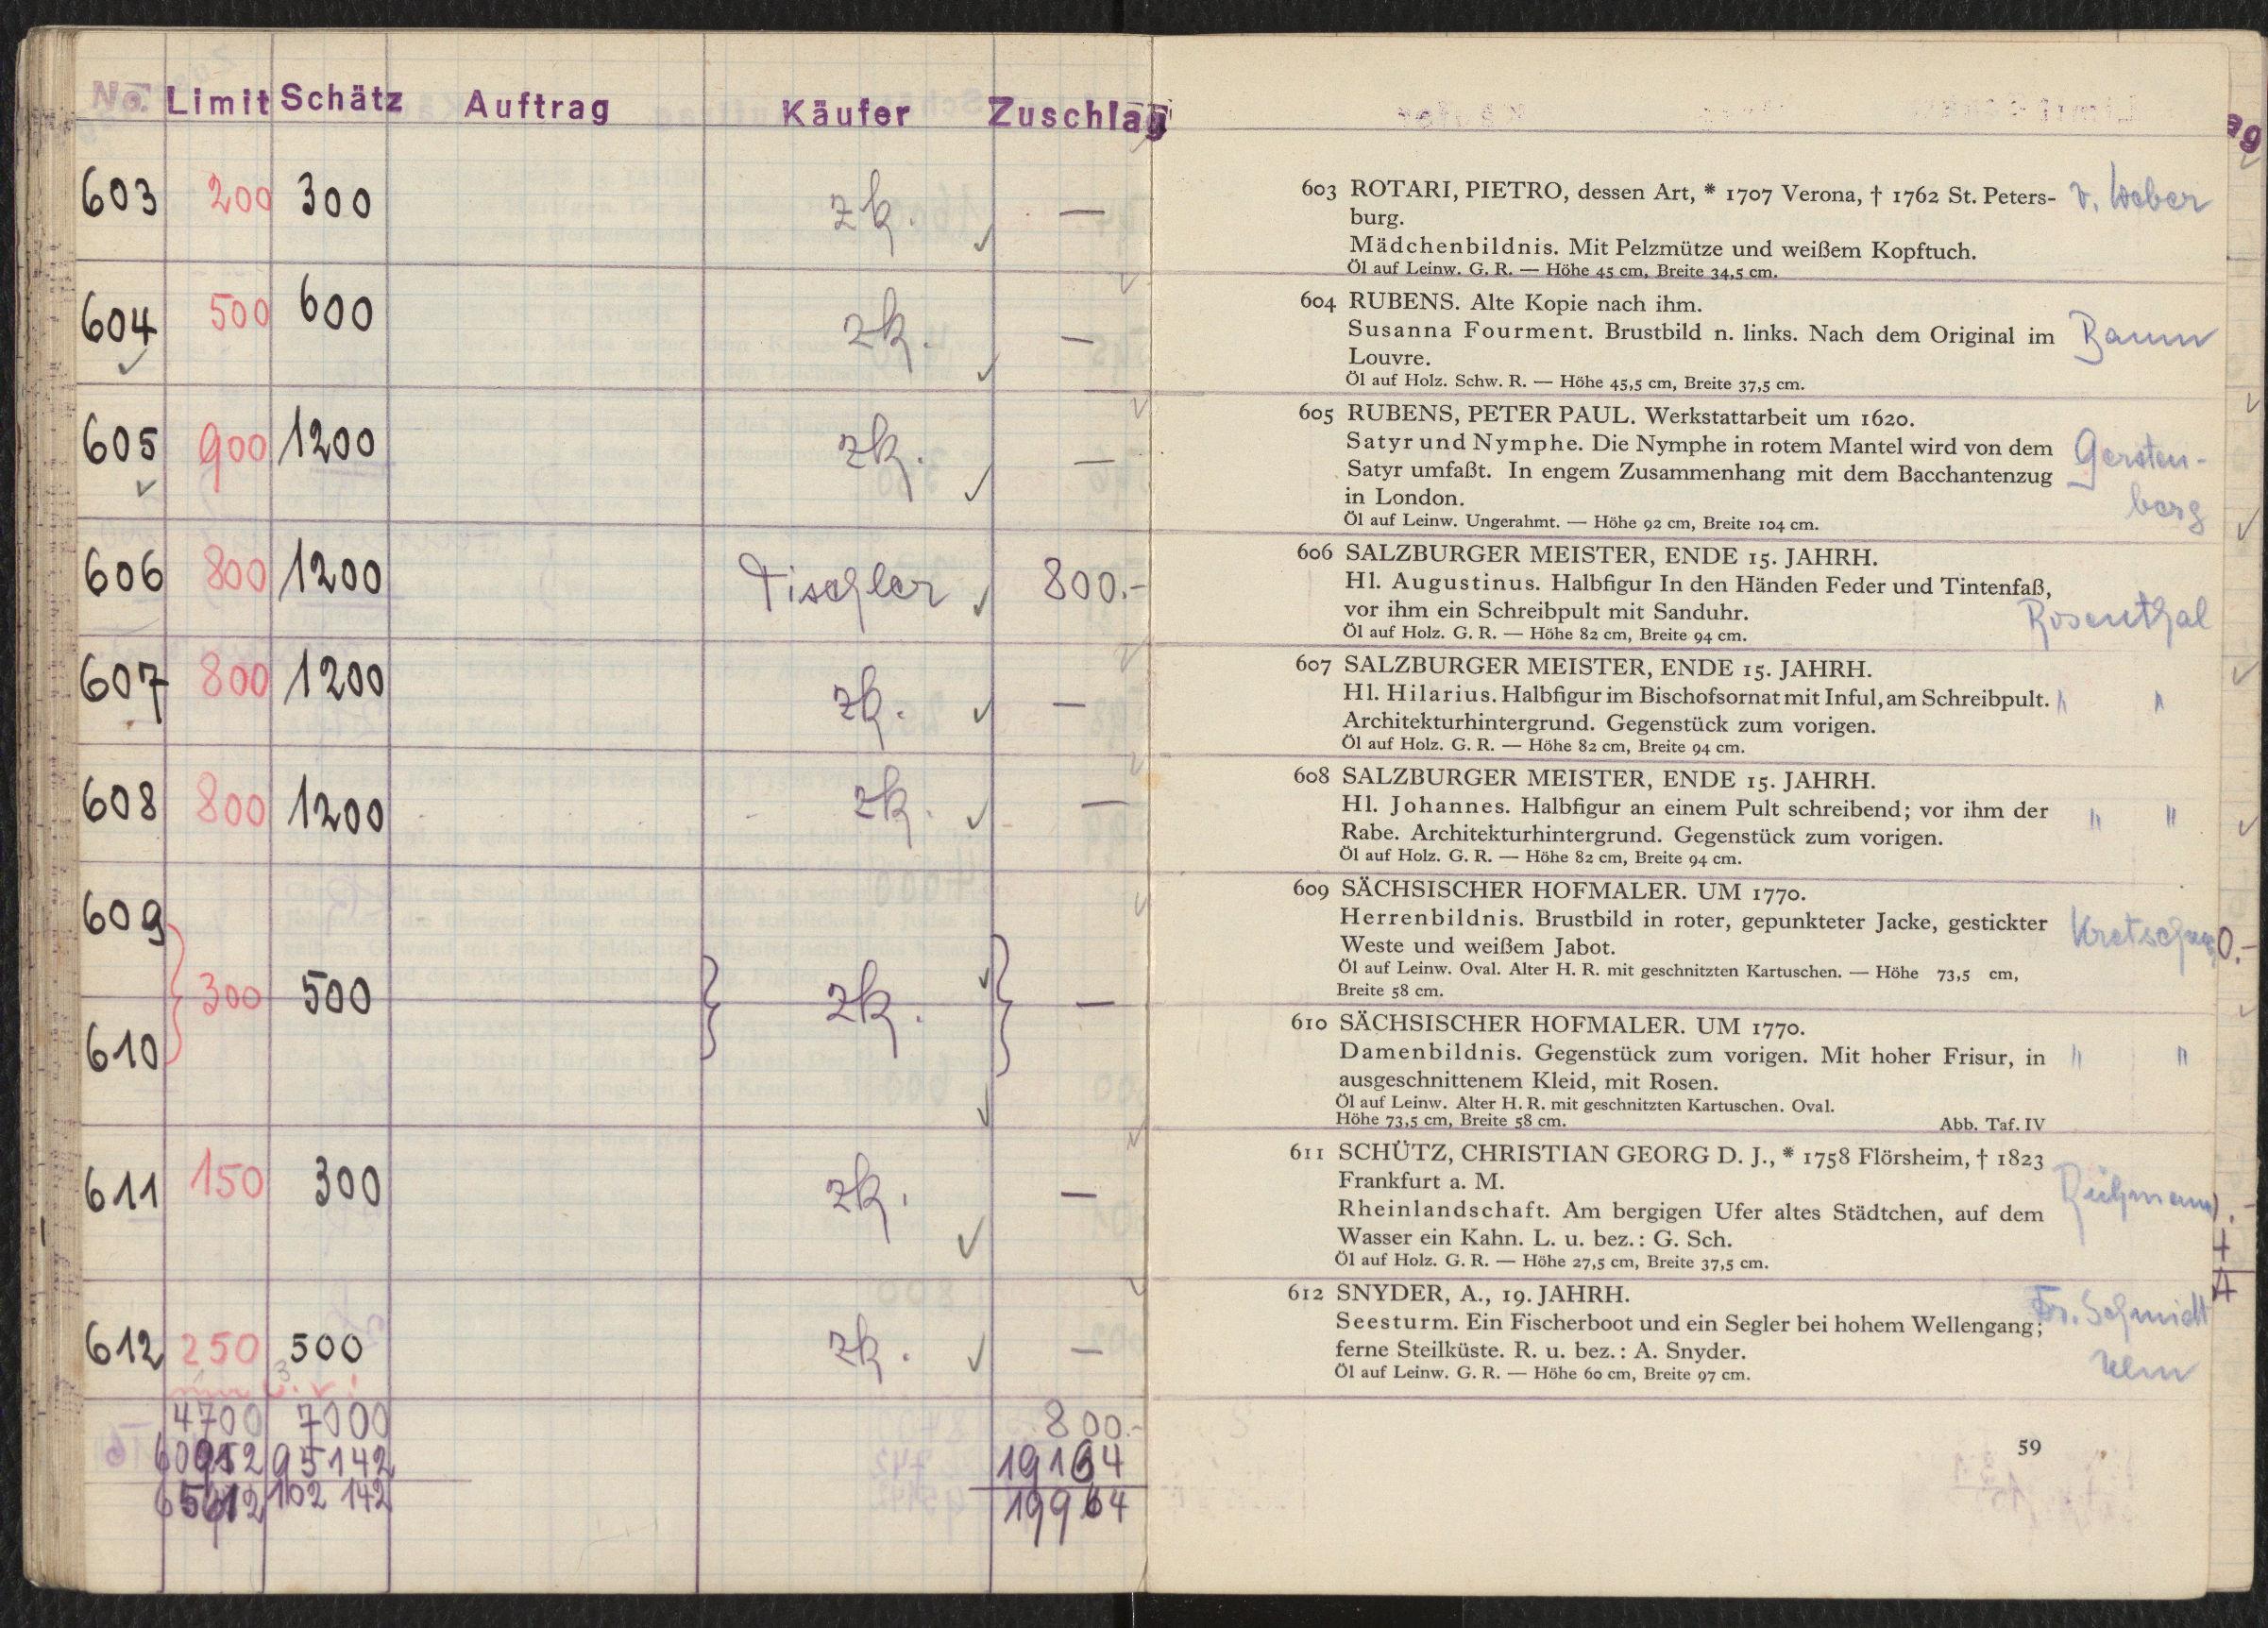 No. Limit Schätz Auftrag Käufer Zuschlag
603 200 300 zk. —
604 500 600 zk. —
605 900 1200 zk. —
606 800 1200 Tischler 800.-
607 800 1200 zk. —
608 800 1200 zk. —
609
300 500 zk. —
610
611 150 300 zk. —
612 250 500 zk. —
4700 7000 800.-
95142 19164
102 142 19964
603 ROTARI, PIETRO, dessen Art, * 1707 Verona, † 1762 St. Peters- v. Weber
burg.
Mädchenbildnis. Mit Pelzmütze und weißem Kopftuch.
Öl auf Leinw. G. R. — Höhe 45 cm, Breite 34,5 cm.
604 RUBENS. Alte Kopie nach ihm.
Susanna Fourment. Brustbild n. links. Nach dem Original im Baum
Louvre.
Öl auf Holz. Schw. R. — Höhe 45,5 cm, Breite 37,5 cm.
605 RUBENS, PETER PAUL. Werkstattarbeit um 1620.
Satyr und Nymphe. Die Nymphe in rotem Mantel wird von dem Gersten-
Satyr umfaßt. In engem Zusammenhang mit dem Bacchantenzug
in London. berg
Öl auf Leinw. Ungerahmt. — Höhe 92 cm, Breite 104 cm.
606 SALZBURGER MEISTER, ENDE 15. JAHRH.
Hl. Augustinus. Halbfigur In den Händen Feder und Tintenfaß,
vor ihm ein Schreibpult mit Sanduhr. Rosenthal
Öl auf Holz. G. R. — Höhe 82 cm, Breite 94 cm.
607 SALZBURGER MEISTER, ENDE 15. JAHRH.
Hl. Hilarius. Halbfigur im Bischofsornat mit Inful, am Schreibpult. " "
Architekturhintergrund. Gegenstück zum vorigen.
Öl auf Holz. G. R. — Höhe 82 cm, Breite 94 cm.
608 SALZBURGER MEISTER, ENDE 15. JAHRH.
Hl. Johannes. Halbfigur an einem Pult schreibend; vor ihm der " "
Rabe. Architekturhintergrund. Gegenstück zum vorigen.
Öl auf Holz. G. R. — Höhe 82 cm, Breite 94 cm.
609 SÄCHSISCHER HOFMALER. UM 1770.
Herrenbildnis. Brustbild in roter, gepunkteter Jacke, gestickter
Weste und weißem Jabot.
Öl auf Leinw. Oval. Alter H. R. mit geschnitzten Kartuschen. — Höhe 73,5 cm,
Breite 58 cm.
610 SÄCHSISCHER HOFMALER. UM 1770.
Damenbildnis. Gegenstück zum vorigen. Mit hoher Frisur, in " "
ausgeschnittenem Kleid, mit Rosen.
Öl auf Leinw. Alter H. R. mit geschnitzten Kartuschen. Oval.
Höhe 73,5 cm, Breite 58 cm. Abb. Taf. IV
611 SCHÜTZ, CHRISTIAN GEORG D. J., * 1758 Flörsheim, † 1823
Frankfurt a. M.
Rheinlandschaft. Am bergigen Ufer altes Städtchen, auf dem
Wasser ein Kahn. L. u. bez.: G. Sch.
Öl auf Holz. G. R. — Höhe 27,5 cm, Breite 37,5 cm.
612 SNYDER, A., 19. JAHRH.
Seesturm. Ein Fischerboot und ein Segler bei hohem Wellengang; Fr. Schmidt
ferne Steilküste. R. u. bez.: A. Snyder.
Öl auf Leinw. G. R. — Höhe 60 cm, Breite 97 cm.
59